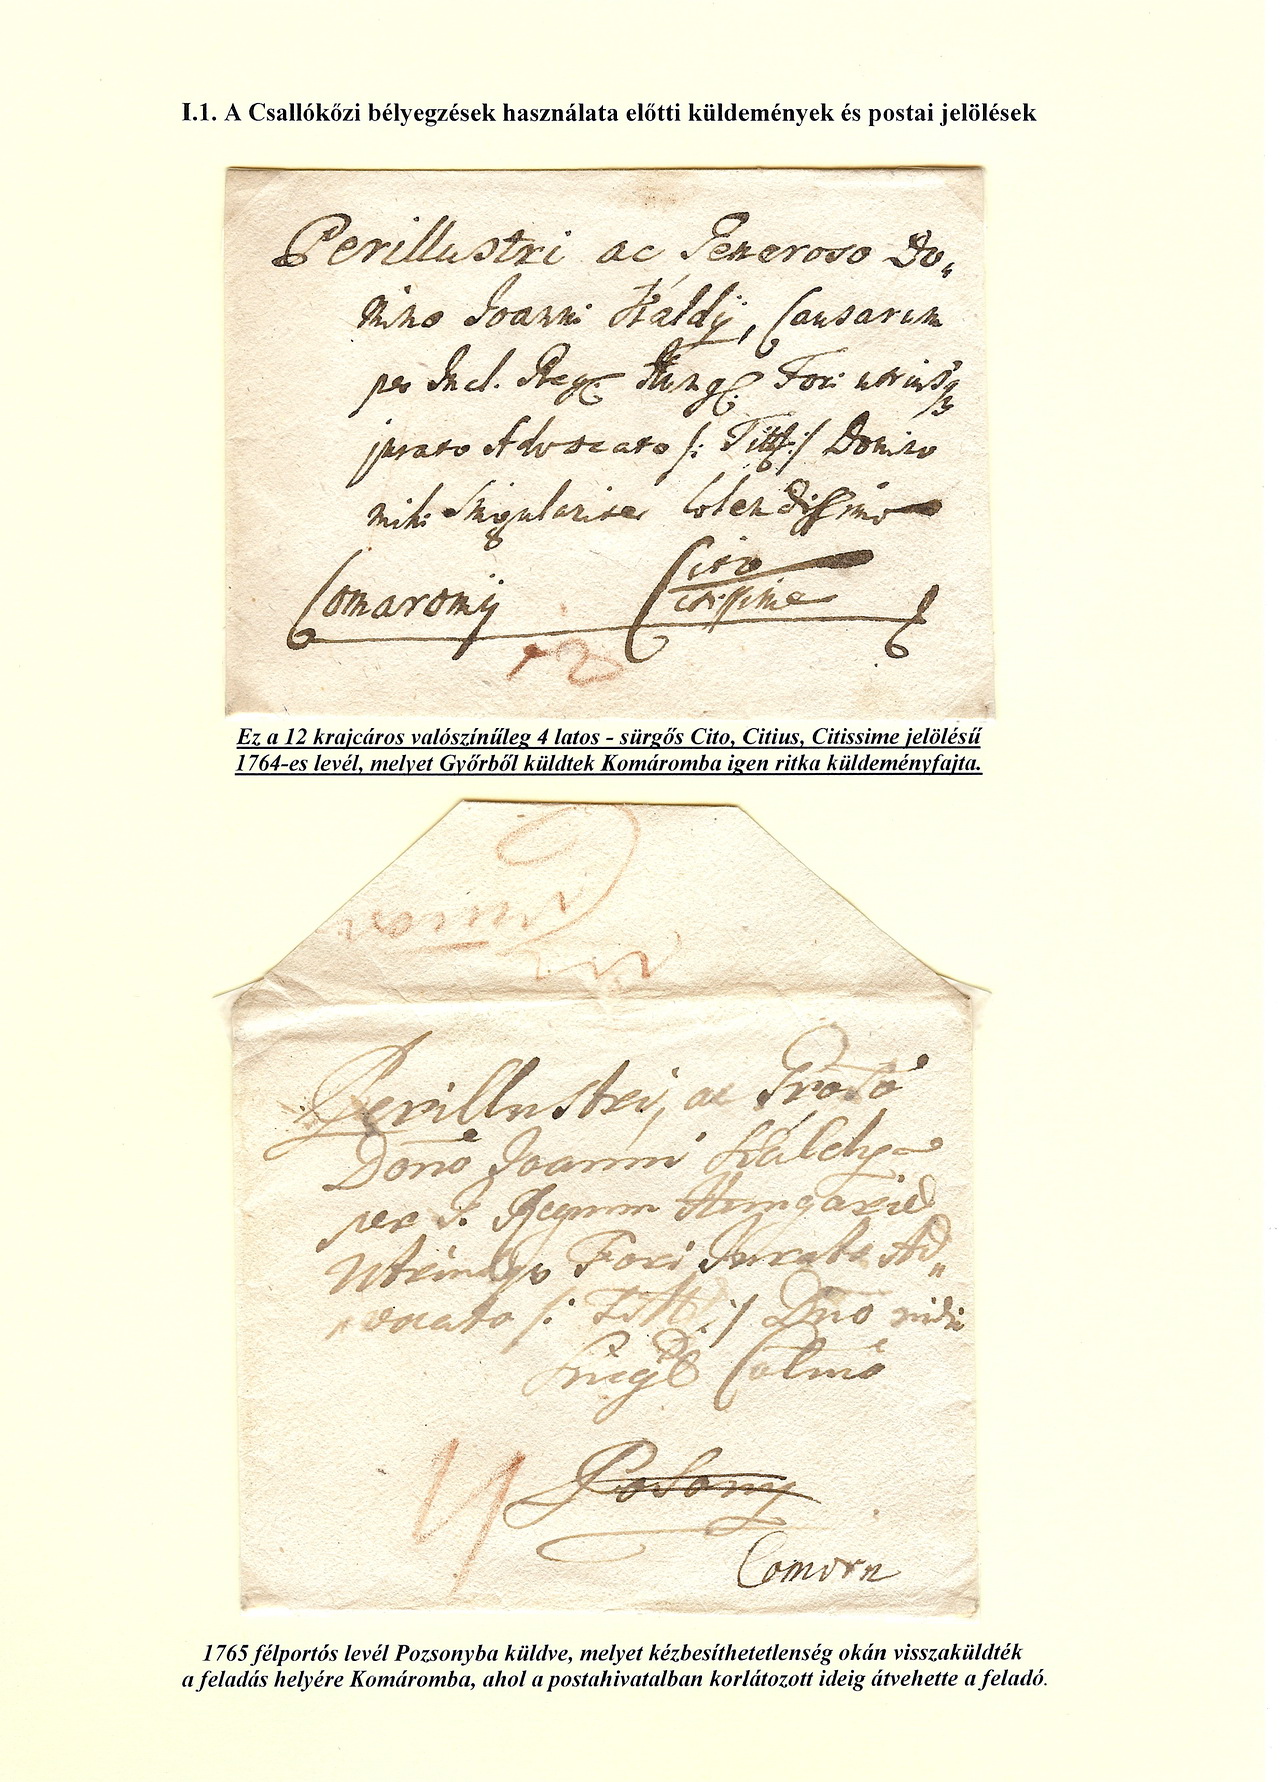 I.1. A Csallókőzi bélyegzések használata előtti küldemények és postai jelölések
Perillustri ac Generoso Do„
mino Joanni Káldÿ, Causarum
per Incl. Reg. Hung. Fori utriusq
jurato Advocato /: Titt :/ Domino
mihi Singulariter Colendissimo
Cito
Comaromÿ citissime
12
Ez a 12 krajcáros valószínűleg 4 latos - sürgős Cito, Citius, Citissime jelölésű
1764-es levél, melyet Győrből küldtek Komáromba igen ritka küldeményfajta.
Perillustri, ac Groso
Dono Joanni Káldy
per I. Regnum Hungariae
Utriusqe Fori Jurato Ad„
vocato /: Titt :/ Dno mihi
Singl Colmo
4
Posony
Comorn
1765 félportós levél Pozsonyba küldve, melyet kézbesíthetetlenség okán visszaküldték
a feladás helyére Komáromba, ahol a postahivatalban korlátozott ideig átvehette a feladó.